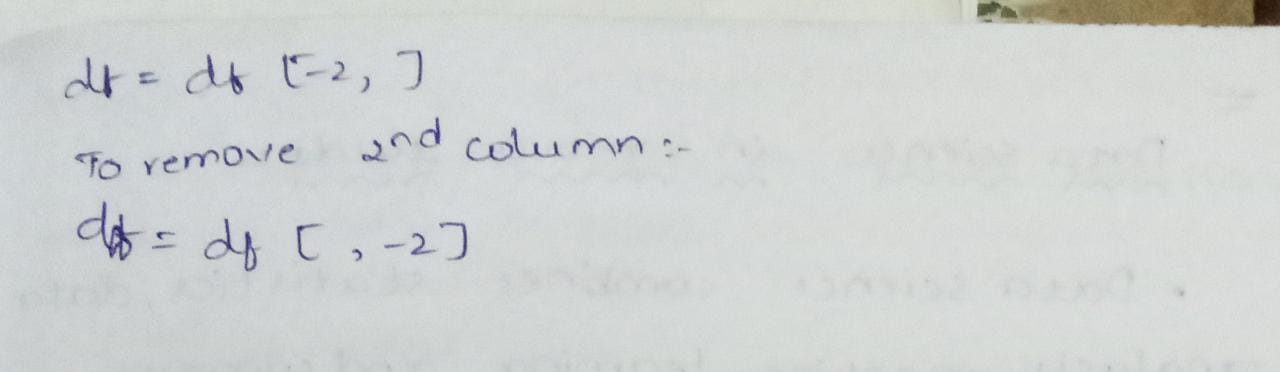 df = df [-2, ]
To remove 2nd column :-
df = df [ , -2]